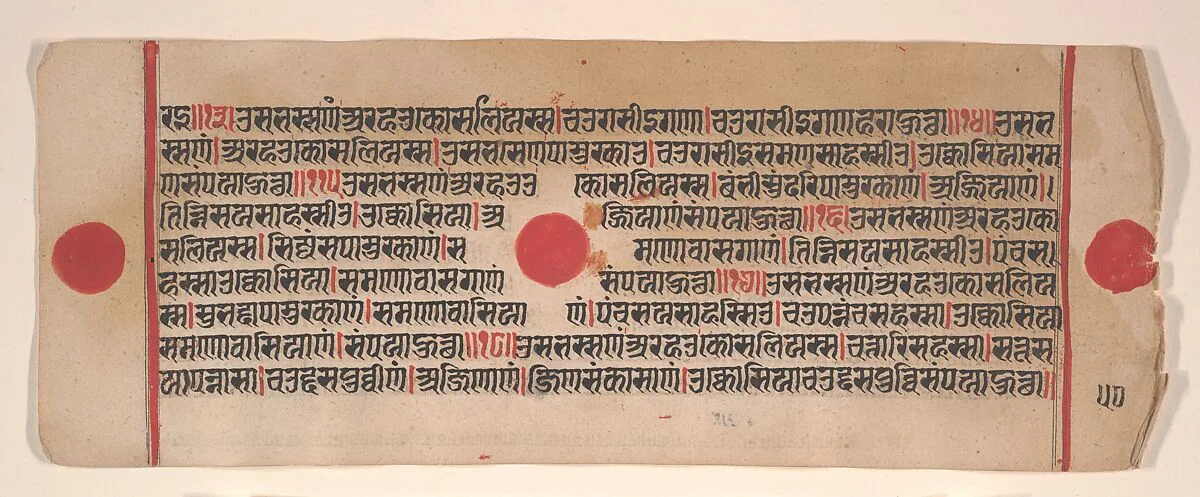 रइ॥१३।उसभस्सणंअरहउकोसलियस्स।चउरासीइगणा।चउरासीइगणहराहुत्था॥१४॥उसभ
स्सणं।अरहउकोसलियस्स।उसभसेणपामुरकाउ।चउरासीइसमणसाहस्सीउ।उक्कोसियासम
णसंपयाहुत्था॥११५उसभस्सणंअरहउउ कोसलियस्स।बंभीसुंदरिपामुरकाणं।अज्जियाणं।।
तिन्निसयसाहस्सीउ।उक्कोसिया।अ ज्जियाणंसंपयाहुत्था॥१६।उसभस्सणंअरहउको
सलियस्स।सिज्जंसपामुरकाणं।स मणोवासगाणं।तिन्निसयसाहस्सीउ।पंचस।
हस्साउक्कोसिया।समणोवासगाणं संपयाहुत्था॥१७॥उसभस्सणंअरहउकोसलिय
स्स।सुभद्दापामुरकाणं।समणोवासिया णं।पंचसयसाहस्सिउ।चउपन्नंचसहस्सा।उक्कोसिया
समणोवासियाणं।संपयाहुत्था॥१८॥उसभस्सणंअरहउकोसलियस्स।चत्तारिसहस्सा।सत्तस
यापन्नासा।चउद्दसपुव्वीणं।अजिणाणं।जिणसंकासाणं।उक्कोसियाचउद्दसपुव्विसंपयाहुत्था॥